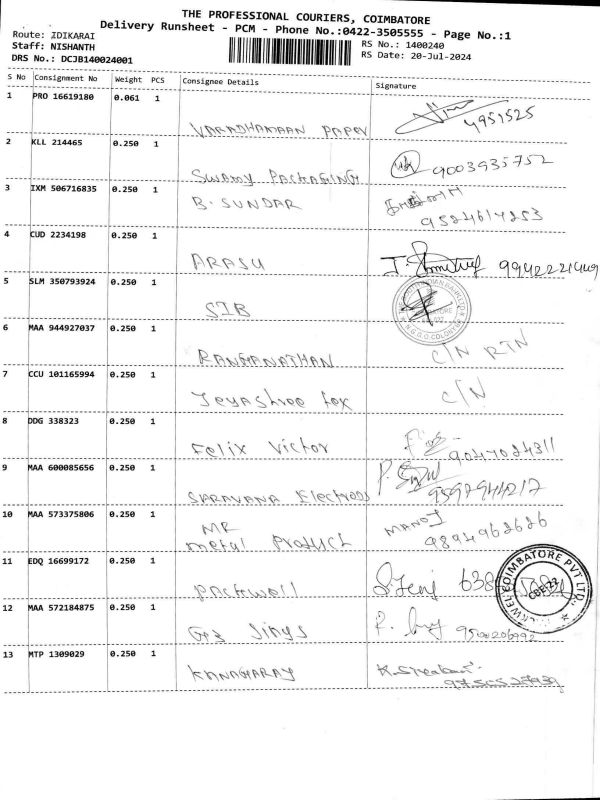 THE PROFESSIONAL COURIERS, COIMBATORE
Delivery Runsheet - PCM - Phone No.:0422-3505555 - Page No.:1
Route: IDIKARAI
Staff: NISHANTH
DRS No.: DCJB140024001
RS No.: 1400240
RS Date: 20-Jul-2024
S No Consignment No Weight PCS Consignee Details Signature
1 PRO 16619180 0.061 1 VARADHAMAAN PAPER 4951525
2 KLL 214465 0.250 1 SWAMY PACKAGING 9003935752
3 IXM 506716835 0.250 1 B. SUNDAR
4 CUD 2234198 0.250 1 ARASU
5 SLM 350793924 0.250 1 SIB
6 MAA 944927037 0.250 1 RANGANATHAN C/N RTN
7 CCU 101165994 0.250 1 Jeyashree tex C/N
8 DDG 338323 0.250 1 Felix Victor 9047024311
9 MAA 600085656 0.250 1 SARAVANA Electrods
10 MAA 573375806 0.250 1 MR metal Product MANOJ 9894962626
11 EDQ 16699172 0.250 1 Packwell
COIMBATORE PVT LTD.
CBE-22
12 MAA 572184875 0.250 1
13 MTP 1309029 0.250 1 KANAGARAJ